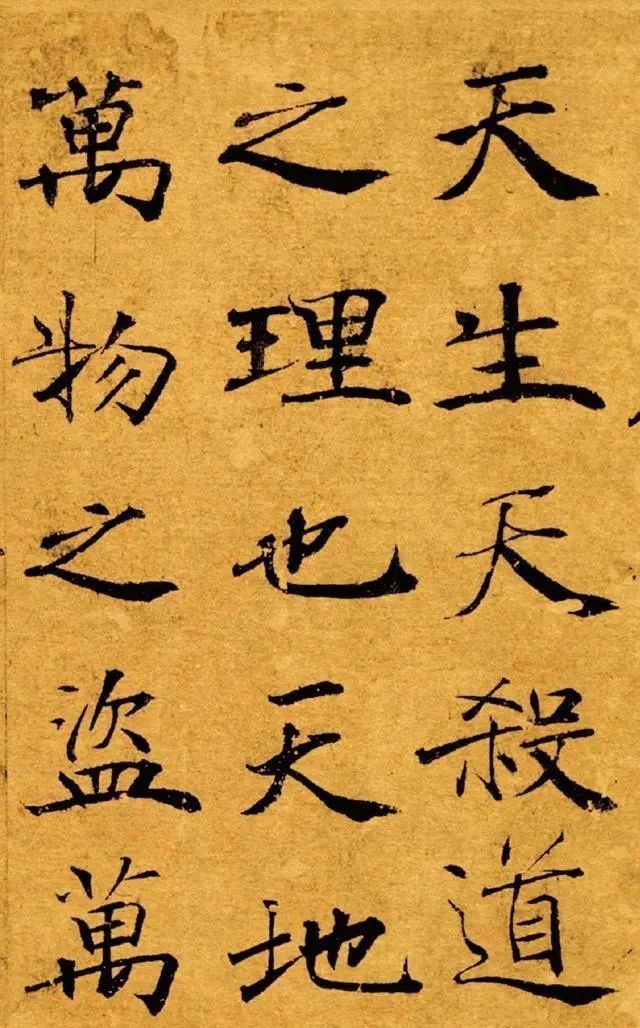 天生天殺道
之理也天地
萬物之盜萬